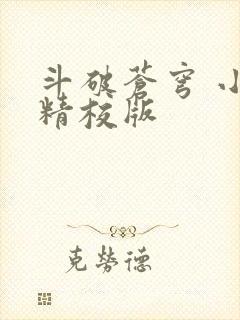 斗破苍穹 小
精校版
克劳德